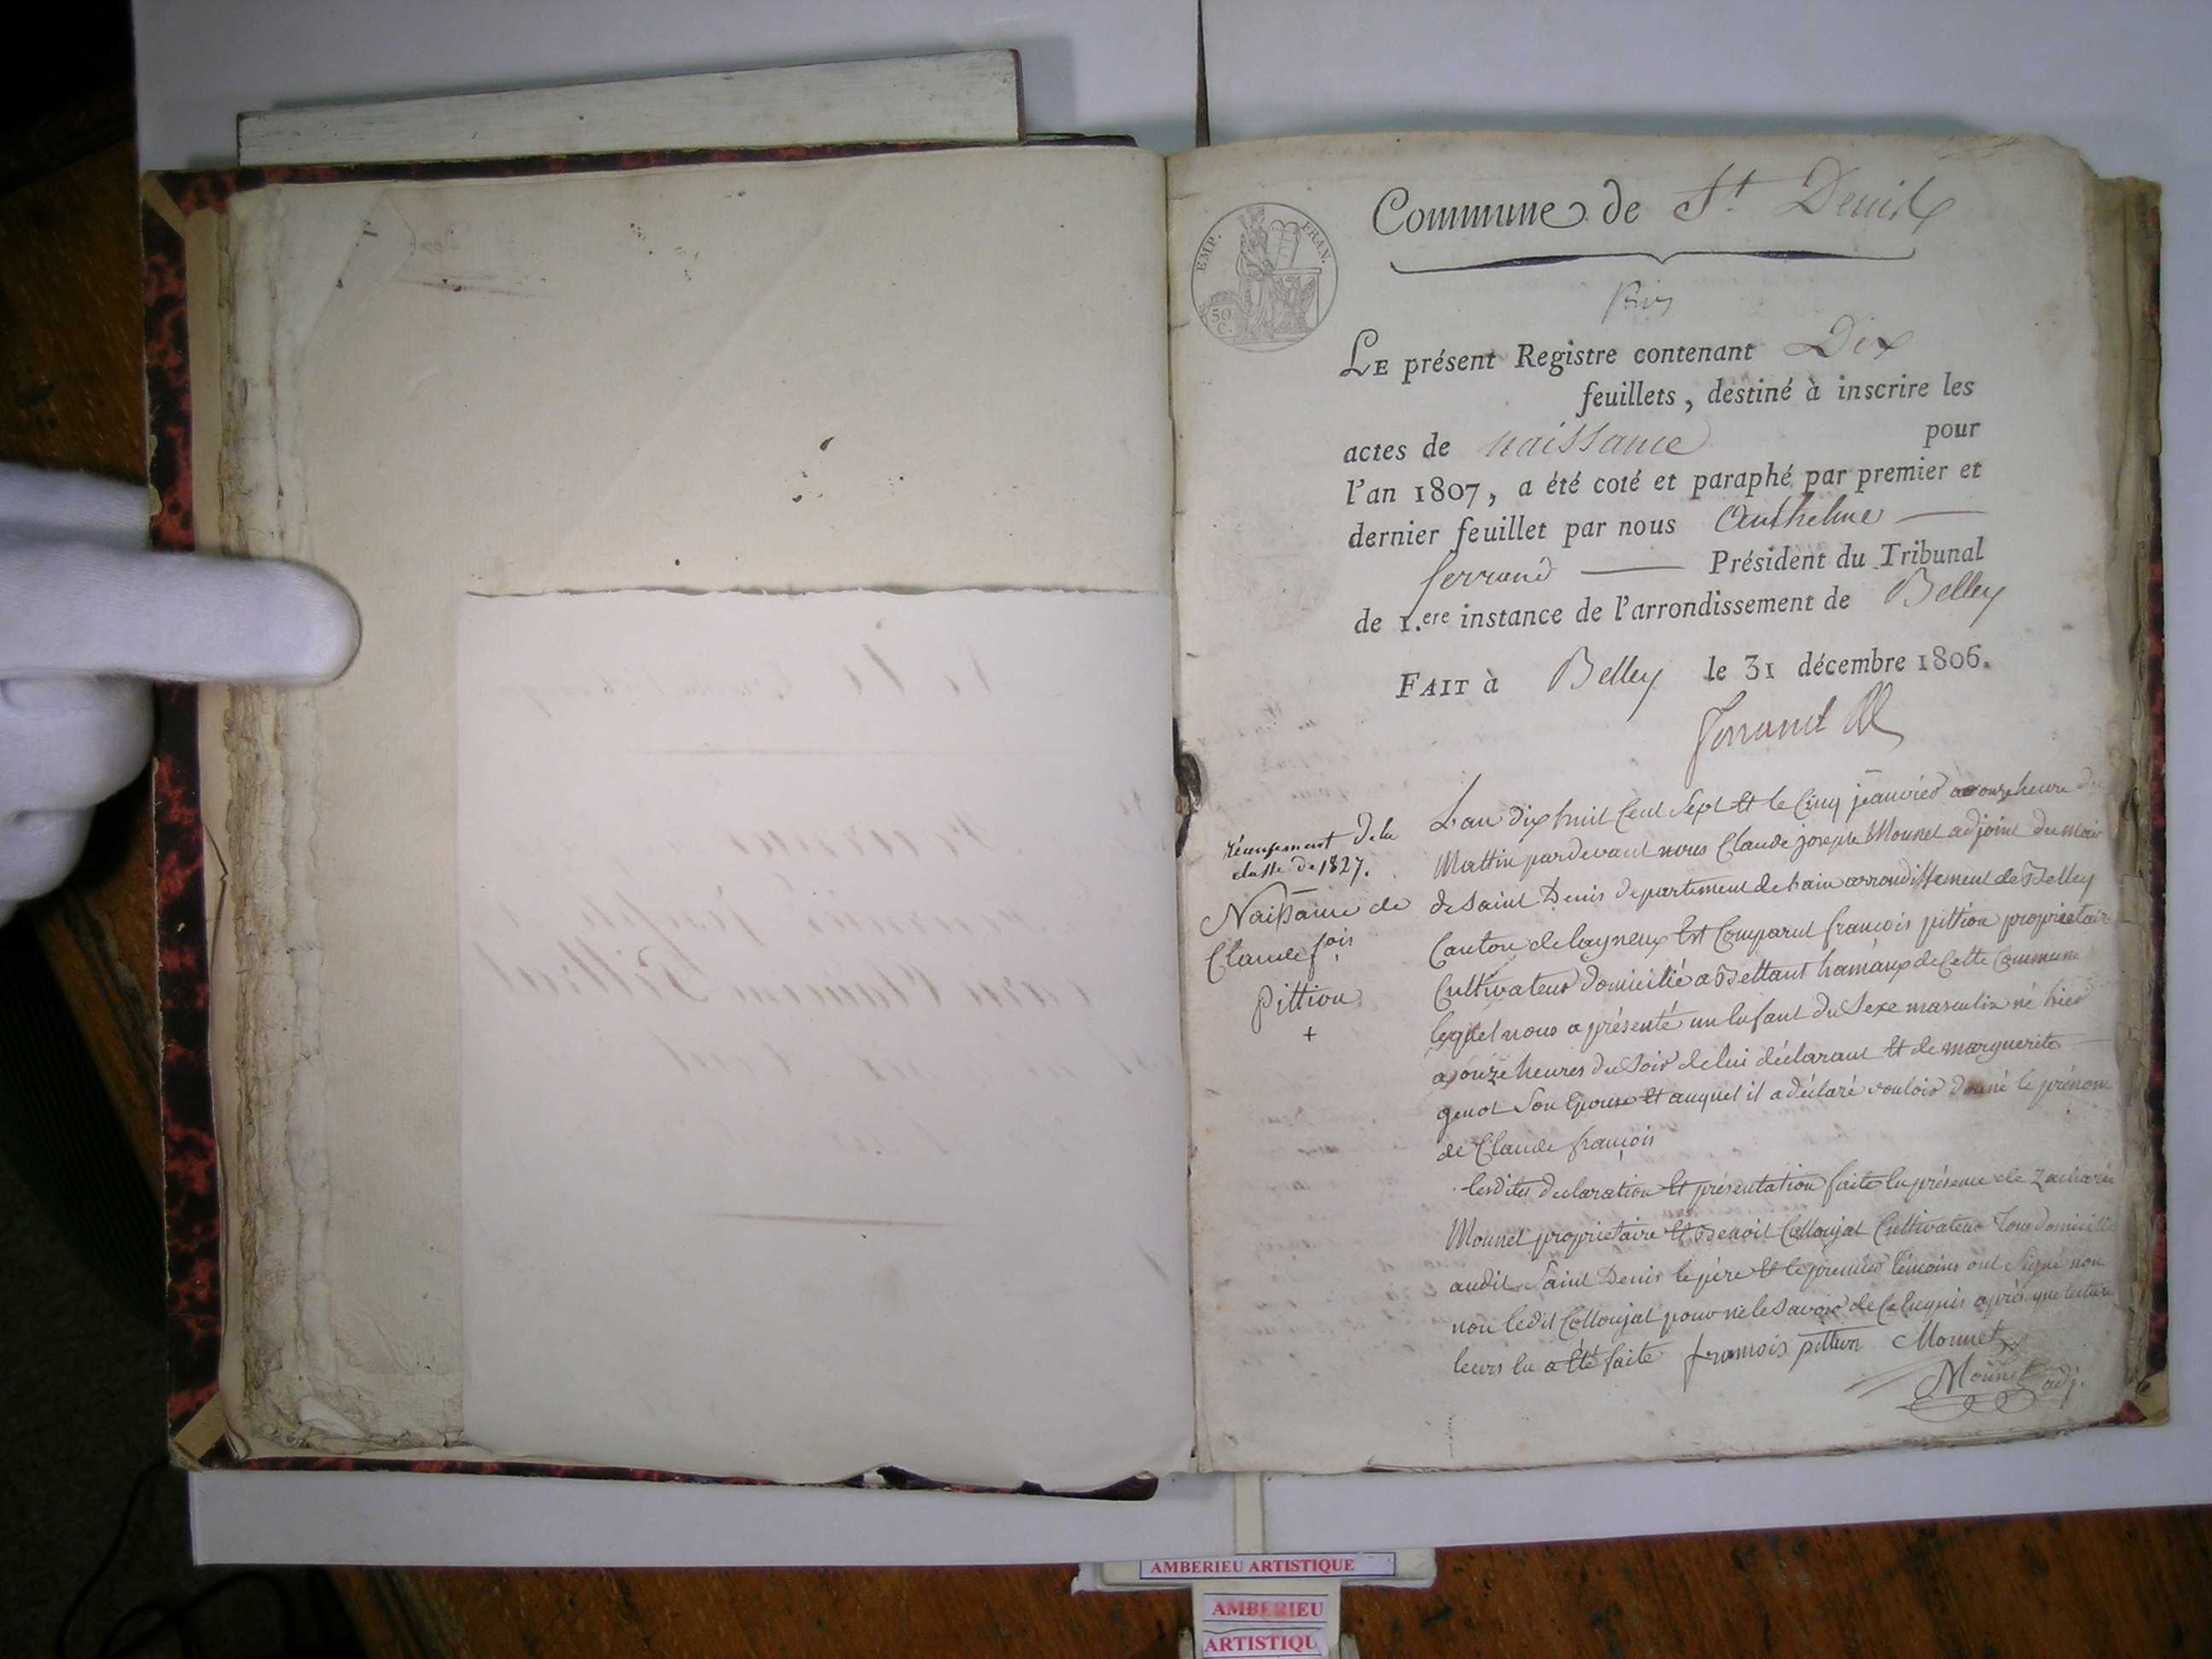 Commune de St Denis
EMP. FRAN.
50
C.
LE présent Registre contenant Dix
feuillets, destiné à inscrire les
actes de naissance pour
l'an 1807, a été coté et paraphé par premier et
dernier feuillet par nous Anthelme
ferrand Président du Tribunal
de 1.ere instance de l'arrondissement de Belley
FAIT à Belley le 31 décembre 1806.
Ferrand
récensement de la
classe de 1827.
Naissance de
Claude fois
Pittion
+
L'an dix huit Cent Sept et le Cinq janvied a onze heure du
Mattin pardevant nous Claude joseph Mounet adjoint du mair
de Saint Denis departement de hain arrondissement de Belley
Canton de lagneux Est Comparut francois pittion proprietair
Cultivateur domicilié a Bettant hamaux de Cette Commune
lequel nous a présenté un Enfant du Sexe masculin né hier
a onze heures du Soir de lui déclarant et de marguerite
genot Son Epouse et auquel il a déclaré vouloir donné le prénom
de Claude francois
lesdites declaration et présentation faite En présence de Zacharie
Mounet proprietaire et Benoit Collonjat Cultivateur Tous domicilié
audit Saint Denis le père et le premier témoins ont Signé non
non ledit Collonjat pour ne le Savoir de Ce Enquis après que lecture
leurs En a été faite francois pittion Mounet
Mounet adj.
AMBERIEU ARTISTIQUE
AMBERIEU
ARTISTIQU